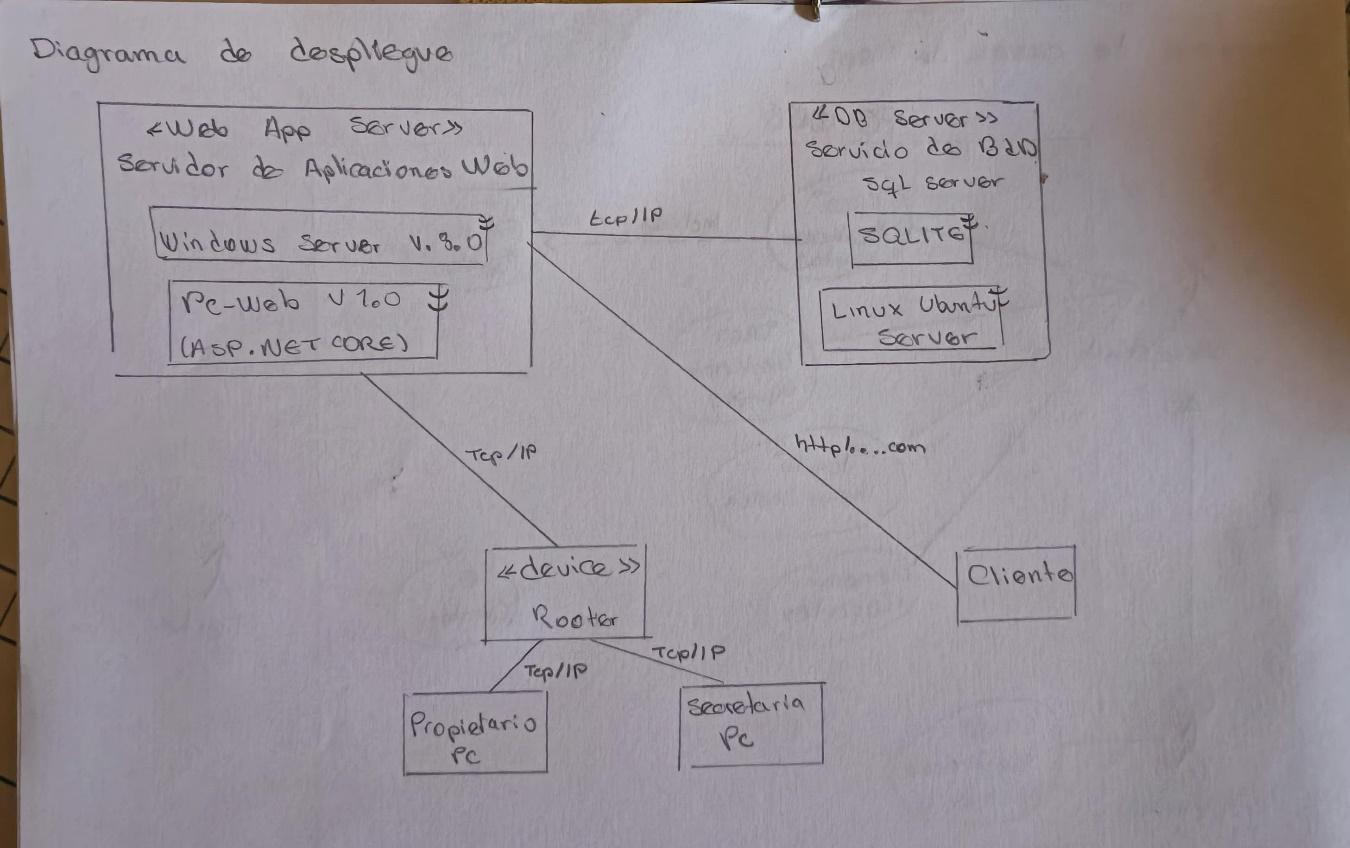 Diagrama de despliegue
<<Web App Server>>
Servidor de Aplicaciones Web
Windows Server V. 8.0
Pc-Web V 1.0
(ASP.NET CORE)
<<DB Server>>
Servicio de BdD
SqL Server
SQLITE
Linux Ubuntu
Server
tcp/IP
http/:...com
Tcp/IP
<<device>>
Rooter
Cliente
Tcp/IP
Tcp/IP
Propietario
PC
Secretaria
PC